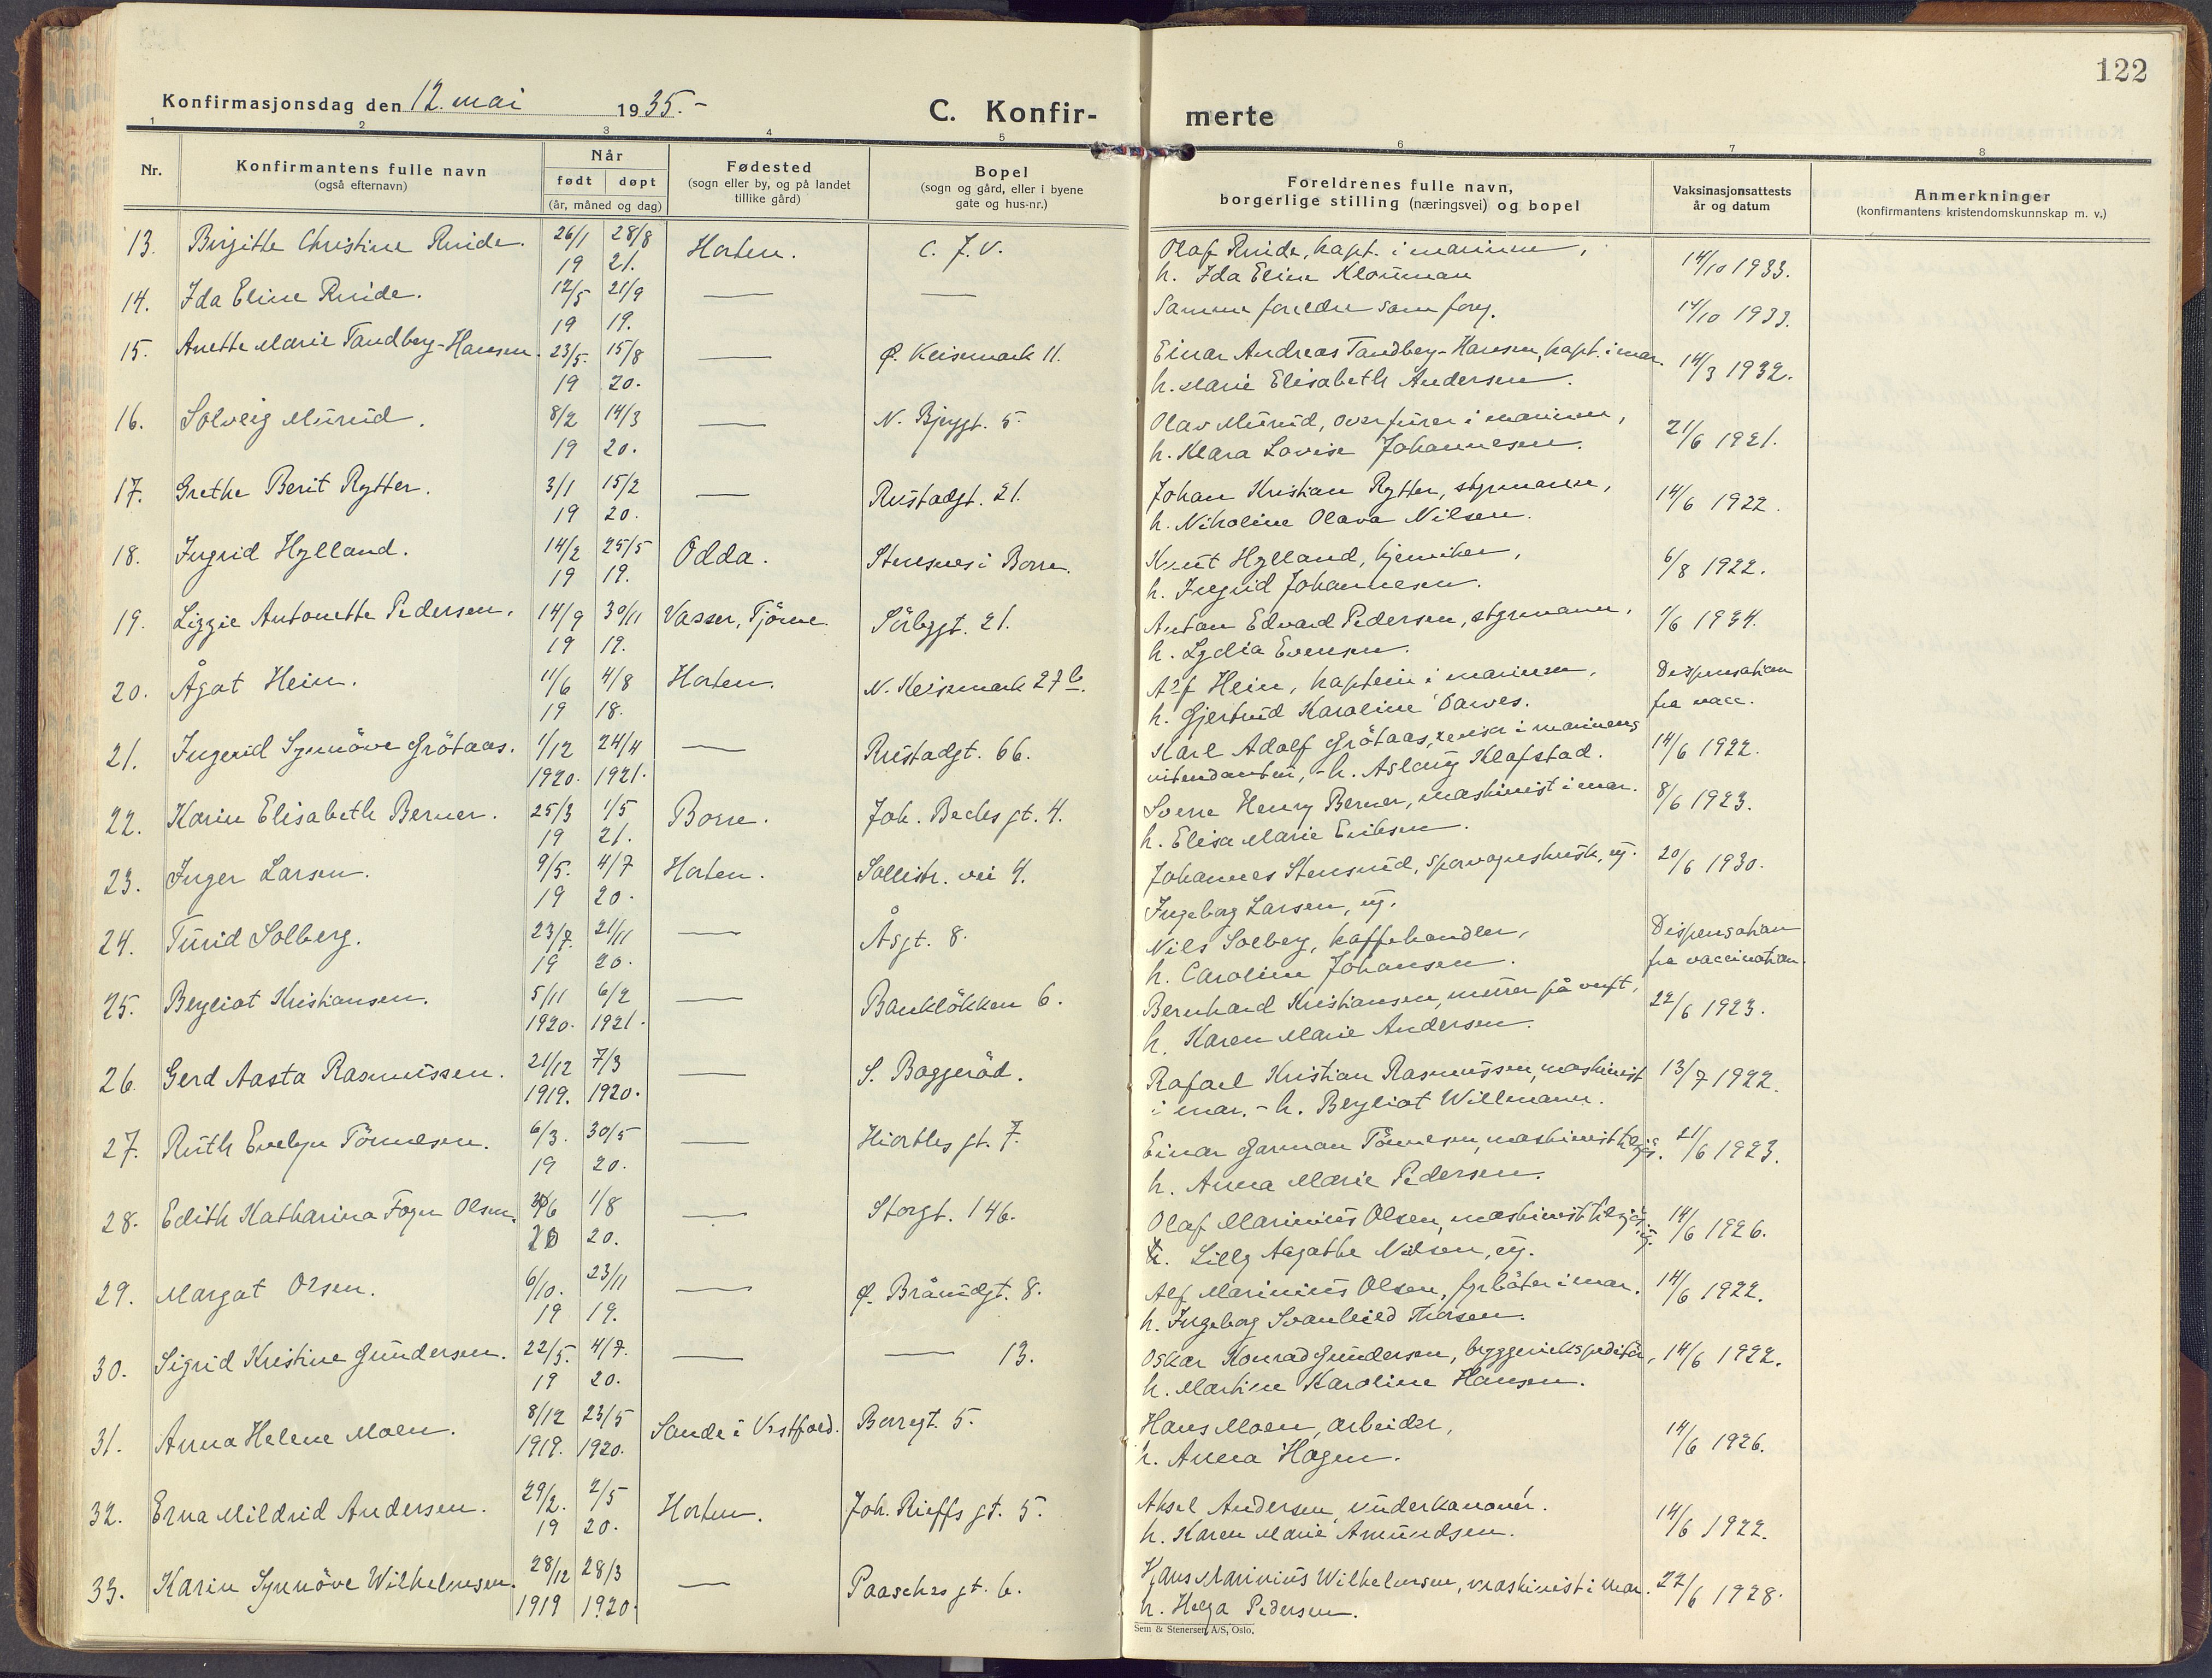 122
Konfirmasjonsdag den 12. mai 1935.-
C. Konfir- merte
1 2 3 4 5 6 7 8
Nr.
Konfirmantens fulle navn
(også efternavn)
Når
født døpt
(år, måned og dag)
Fødested
(sogn eller by, og på landet
tillike gård)
Bopel
(sogn og gård, eller i byene
gate og hus-nr.)
Foreldrenes fulle navn,
borgerlige stilling (næringsvei) og bopel
Vaksinasjonsattests
år og datum
Anmerkninger
(konfirmantens kristendomskunnskap m. v.)
13. Birgitte Christine Ruide. 26/1 28/8 Horten. C. J. V. Olaf Ruide, kapt. i marinen, 14/10 1933.
19 21. h. Ida Eline Klouman
14. Ida Eline Ruide. 12/5 21/9 — — Samme foreldre som forg. 14/10 1933.
19 19.
15. Anette Marie Tandberg-Hansen. 23/5. 15/8 — Ø. Keisemark 11. Einar Andreas Tandberg-Hansen, kapt. i mar. 14/3 1932.
19 20. h. Marie Elisabeth Andersen.
16. Solveig Murud. 8/2 14/3 — N. Bjergt. 5. Olav Murud, overfurer i marinen, 21/6 1921.
19 20. h. Klara Lovise Johannesen.
17. Grethe Berit Rytter. 3/1 15/2 — Rustadgt. 21. Johan Kristian Rytter, styrmann, 14/6 1922.
19 20. h. Nikoline Olava Nilsen.
18. Ingrid Hylland. 14/2 25/5 Odda. Stensnes i Borre. Knut Hylland, kjemiker, 6/8 1922.
19 19. h. Ingrid Johannesen.
19. Lizzie Antonette Pedersen. 14/9 30/11 Vasser, Tjöme. Sörbygt. 21. Anton Edvard Pedersen, styrmann, 1/6 1934.
19 19. h. Lydia Evensen.
20. Ågot Hein. 11/6 4/8 Horten. N. Keisemark 27 b. Alf Hein, kaptein i marinen, Dispensation
19 18. h. Gjertrud Karoline Darves. fra vacc.
21. Ingerid Synnöve Grötaas. 1/12 24/4 — Rustadgt. 66. Karl Adolf Grötaas, revisor i marinens 14/6 1922.
1920. 1921. intendantur, - h. Aslaug Klafstad.
22. Karin Elisabeth Berner. 25/3 1/5 Borre. Joh. Bechs gt. 4. Sverre Henry Berner, maskinist i mar. 8/6 1923.
19 21. h. Elisa Marie Eriksen.
23. Inger Larsen. 9/5. 4/7 Horten. Sollistr. vei 4. Johannes Stensrud, sporvognskusk, ug. 20/6 1930.
19 20. Ingeborg Larsen, ug.
24. Turid Solberg. 23/7. 21/11 — Åsgt. 8. Nils Solberg, kaffehandler, Dispensation
19 20. h. Caroline Johansen. fra vaccination.
25. Bergliot Kristiansen. 5/11 6/2 — Banklökken 6. Bernhard Kristiansen, murer på verft, 22/6 1923.
1920. 1921. h. Karen Marie Andersen.
26. Gerd Aasta Rasmussen. 21/12 7/3 — S. Baggeröd. Rafael Kristian Rasmussen, maskinist 13/7 1922.
1919. 1920. i mar. - h. Bergliot Willmann.
27. Ruth Evelyn Tönnesen. 6/3. 30/5 — Hiorthes gt. 7. Einar Garman Tönnesen, maskinist tilsjøs. 21/6 1923.
19 20. h. Anna Marie Pedersen.
28. Edith Katharina Foyn Olsen. /6 1/8 — Storgt. 146. Olaf Marinius Olsen, maskinist tilsjøs. ug. 14/6 1926.
20 20. Lilly Aagathe Nilsen, ug.
29. Margot Olsen. 6/10. 23/11 — Ø. Bråudgt. 8. Alf Marinius Olsen, fyrböter i mar. 14/6 1922.
19 19. h. Ingeborg Svanhild Thorsen.
30. Sigrid Kristine Gundersen. 22/5. 4/7. — — 13. Oskar Konrad Gundersen, bryggeriekspeditör, 14/6 1922.
19 20. h. Martine Karoline Hansen.
31. Anna Helene Moen. 8/12 23/5 Sande i Vestfold. Borregt. 5. Hans Moen, arbeider, 14/6 1926.
1919. 1920. h. Anna Hagen.
32. Erna Mildrid Andersen. 29/2. 2/5 Horten. Joh. Rieffs gt. 5. Aksel Andersen, underkanonér. 14/6 1922.
19 20. h. Karen Marie Amundsen.
33. Karin Synnöve Wilhelmsen. 28/12 28/3 — Paasches gt. 6. Hans Marinius Wilhelmsen, maskinist i mar. 22/6 1928.
1919 1920. h. Helga Pedersen.
Sem & Stenersen A/S, Oslo.